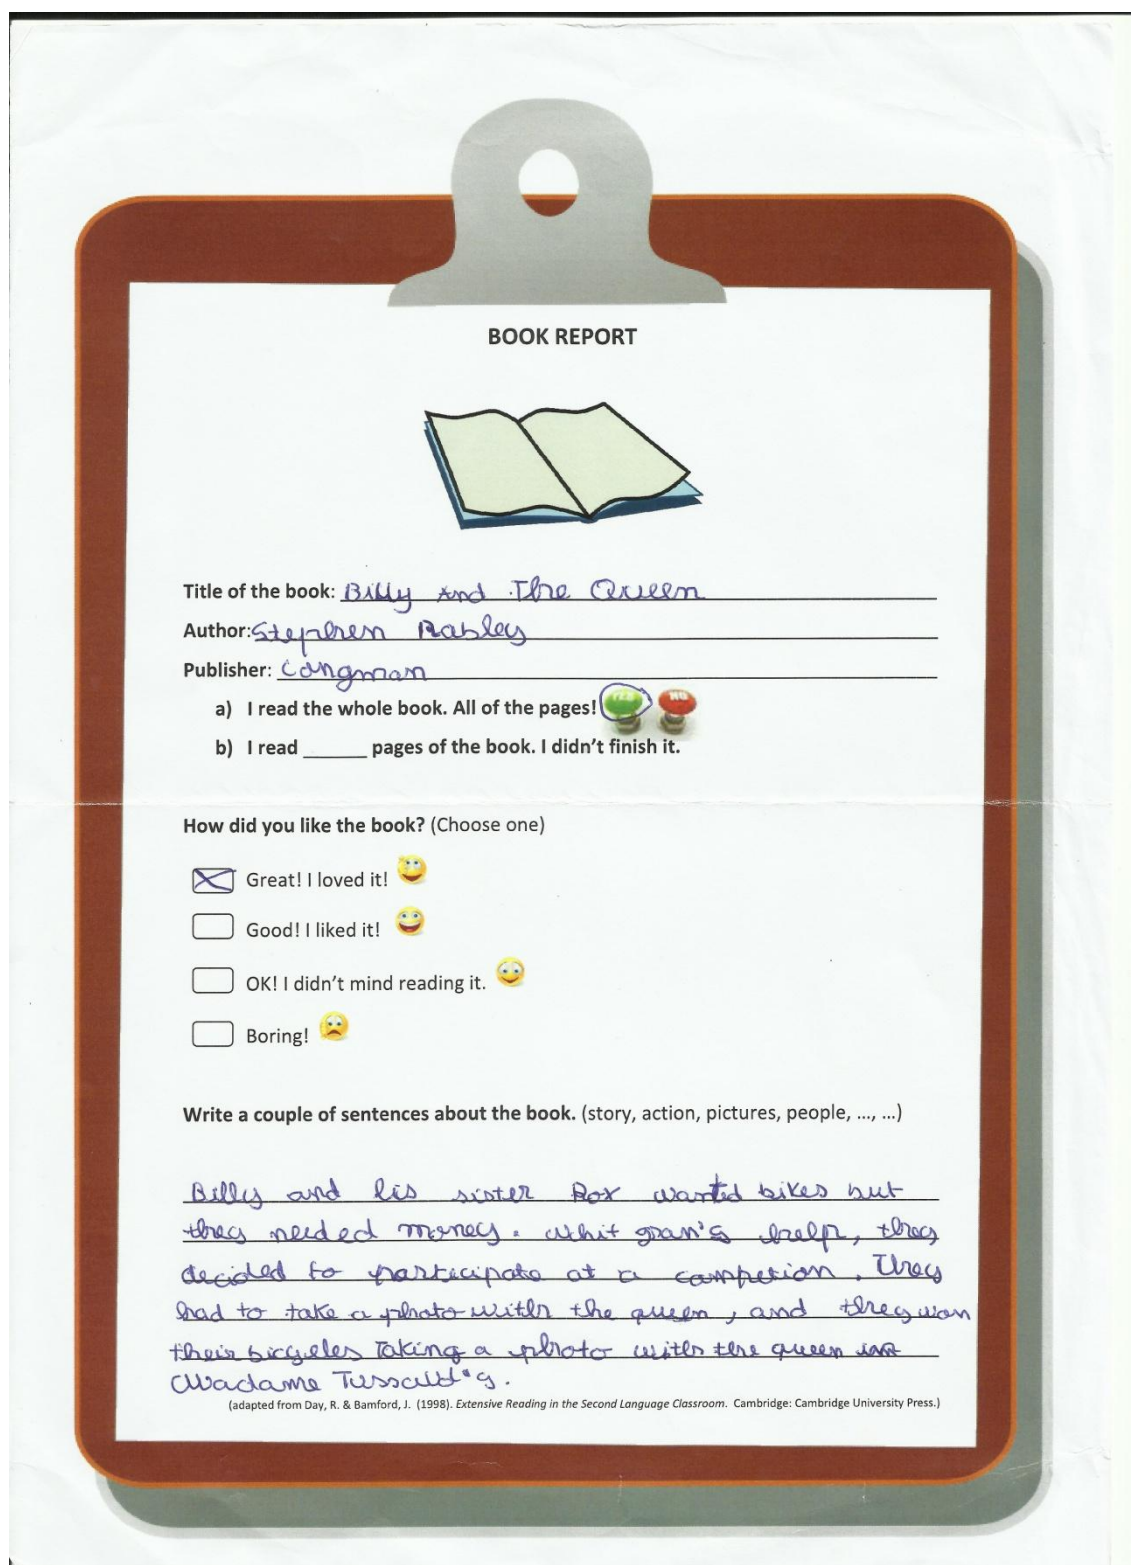 BOOK REPORT
Title of the book: Billy And The Queen
Author: Stephen Rabley
Publisher: Longman
a) I read the whole book. All of the pages! YES NO
b) I read ______ pages of the book. I didn't finish it.
How did you like the book? (Choose one)
Great! I loved it!
Good! I liked it!
OK! I didn't mind reading it.
Boring!
Write a couple of sentences about the book. (story, action, pictures, people, ..., ...)
Billy and his sister Rox wanted bikes but
they needed money. Whit gran's help, they
decided to participate at a competion. They
had to take a photo with the queen, and they won
their bicycles Taking a photo with the queen in
Madame Tussaud's.
(adapted from Day, R. & Bamford, J. (1998). Extensive Reading in the Second Language Classroom. Cambridge: Cambridge University Press.)